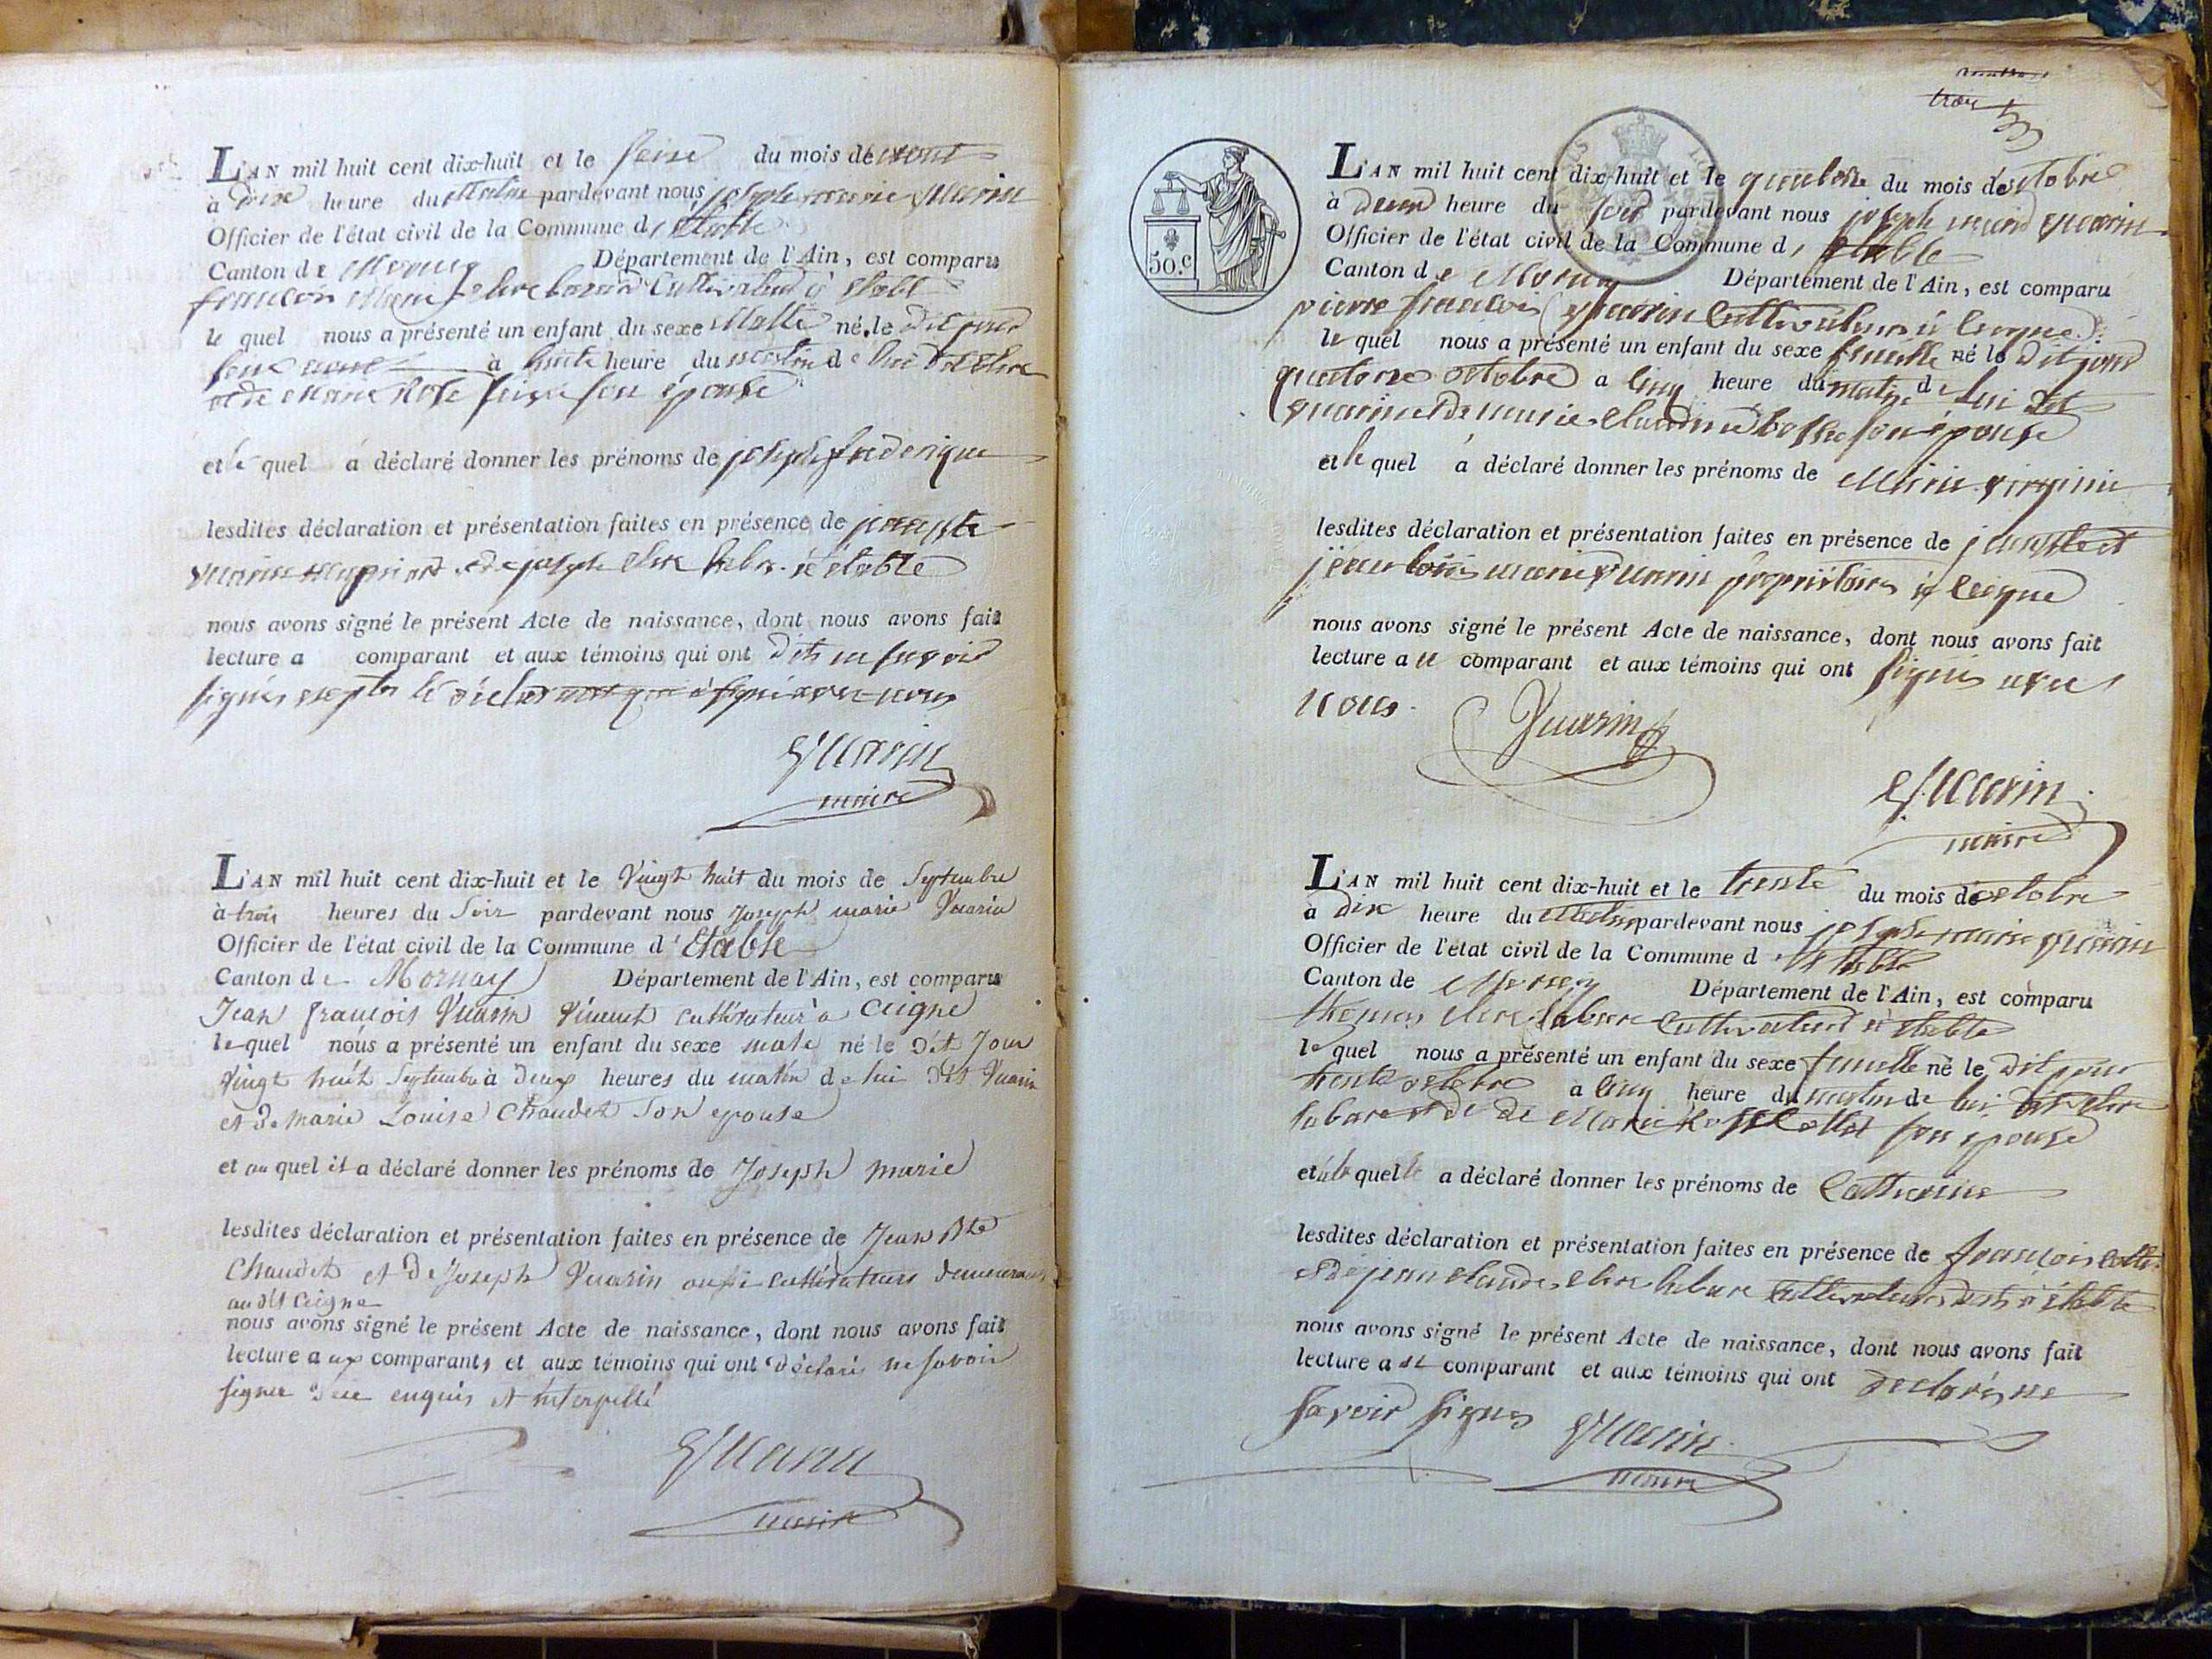 L'AN mil huit cent dix-huit et le seize du mois de aout
à dixe heure du Matin pardevant nous joseph marie Vuarin
Officier de l'état civil de la Commune d'Etable
Canton de Mornay Département de l'Ain, est comparu
françois Marie clere cultivateur à Etable
le quel nous a présenté un enfant du sexe Malle né le dit jour
seize aout à huite heure du matin de lui dit clere
et de Marie Rose son épouse
et le quel á déclaré donner les prénoms de joseph frederique
lesdites déclaration et présentation faites en présence de jean bte
Vuarin et de joseph clere à étable
nous avons signé le présent Acte de naissance, dont nous avons fait
lecture a comparant et aux témoins qui ont dits ne savoir
signés exepter le avec nous
Vuarin
maire
L'AN mil huit cent dix-huit et le Vingt huit du mois de Septembre
à trois heures du Soir pardevant nous Joseph marie Vuarin
Officier de l'état civil de la Commune d'Etable
Canton de Mornay Département de l'Ain, est comparu
Jean françois Vuarin Vincent cultivateur à Ceigne
le quel nous a présenté un enfant du sexe male né le dit Jour
Vingt huit Septembre à deux heures du matin de lui dit Vuarin
et de marie Louise Chaudet son epouse
et au quel il a déclaré donner les prénoms de Joseph marie
lesdites déclaration et présentation faites en présence de Jean Bte
Chaudet et de Joseph Vuarin aussi cultivateurs demeurans
au dit Ceigne
nous avons signé le présent Acte de naissance, dont nous avons fait
lecture aux comparants et aux témoins qui ont déclaré ne savoir
signer de ce enquis et interpellé
Vuarin
maire
trois
50.c
L'AN mil huit cent dix-huit et le quatorze du mois de octobre
à deux heure du soir pardevant nous joseph marie Vuarin
Officier de l'état civil de la Commune d'Etable
Canton de Mornay Département de l'Ain, est comparu
pierre françois Vuarin Cultivateur à Ceigne
le quel nous a présenté un enfant du sexe femelle né le dit jour
quatorze octobre a cinq heure du matin de lui dit
Vuarin et de marie Claudine bosse son épouse
et le quel á déclaré donner les prénoms de Marie virginie
lesdites déclaration et présentation faites en présence de jean bte et
jean louis marie Vuarin propriétaires à Ceigne
nous avons signé le présent Acte de naissance, dont nous avons fait
lecture a u comparant et aux témoins qui ont signés avec
nous
Vuarin
Vuarin
maire
L'AN mil huit cent dix-huit et le trente du mois de octobre
à dixe heure du Matin pardevant nous joseph marie Vuarin
Officier de l'état civil de la Commune d'Etable
Canton de Mornay Département de l'Ain, est comparu
thomas clere labare Cultivateur à étable
le quel nous a présenté un enfant du sexe femelle né le dit jour
trente octobre a cinq heure du matin de lui dit clere
labare et de de Marie Rose Collet son épouse
et quel a déclaré donner les prénoms de Catherine
lesdites déclaration et présentation faites en présence de françois Collet
et de jean claude clere labare Cultivateurs dits à étable
nous avons signé le présent Acte de naissance, dont nous avons fait
lecture a u comparant et aux témoins qui ont declarés ne
savoir signer
Vuarin
maire